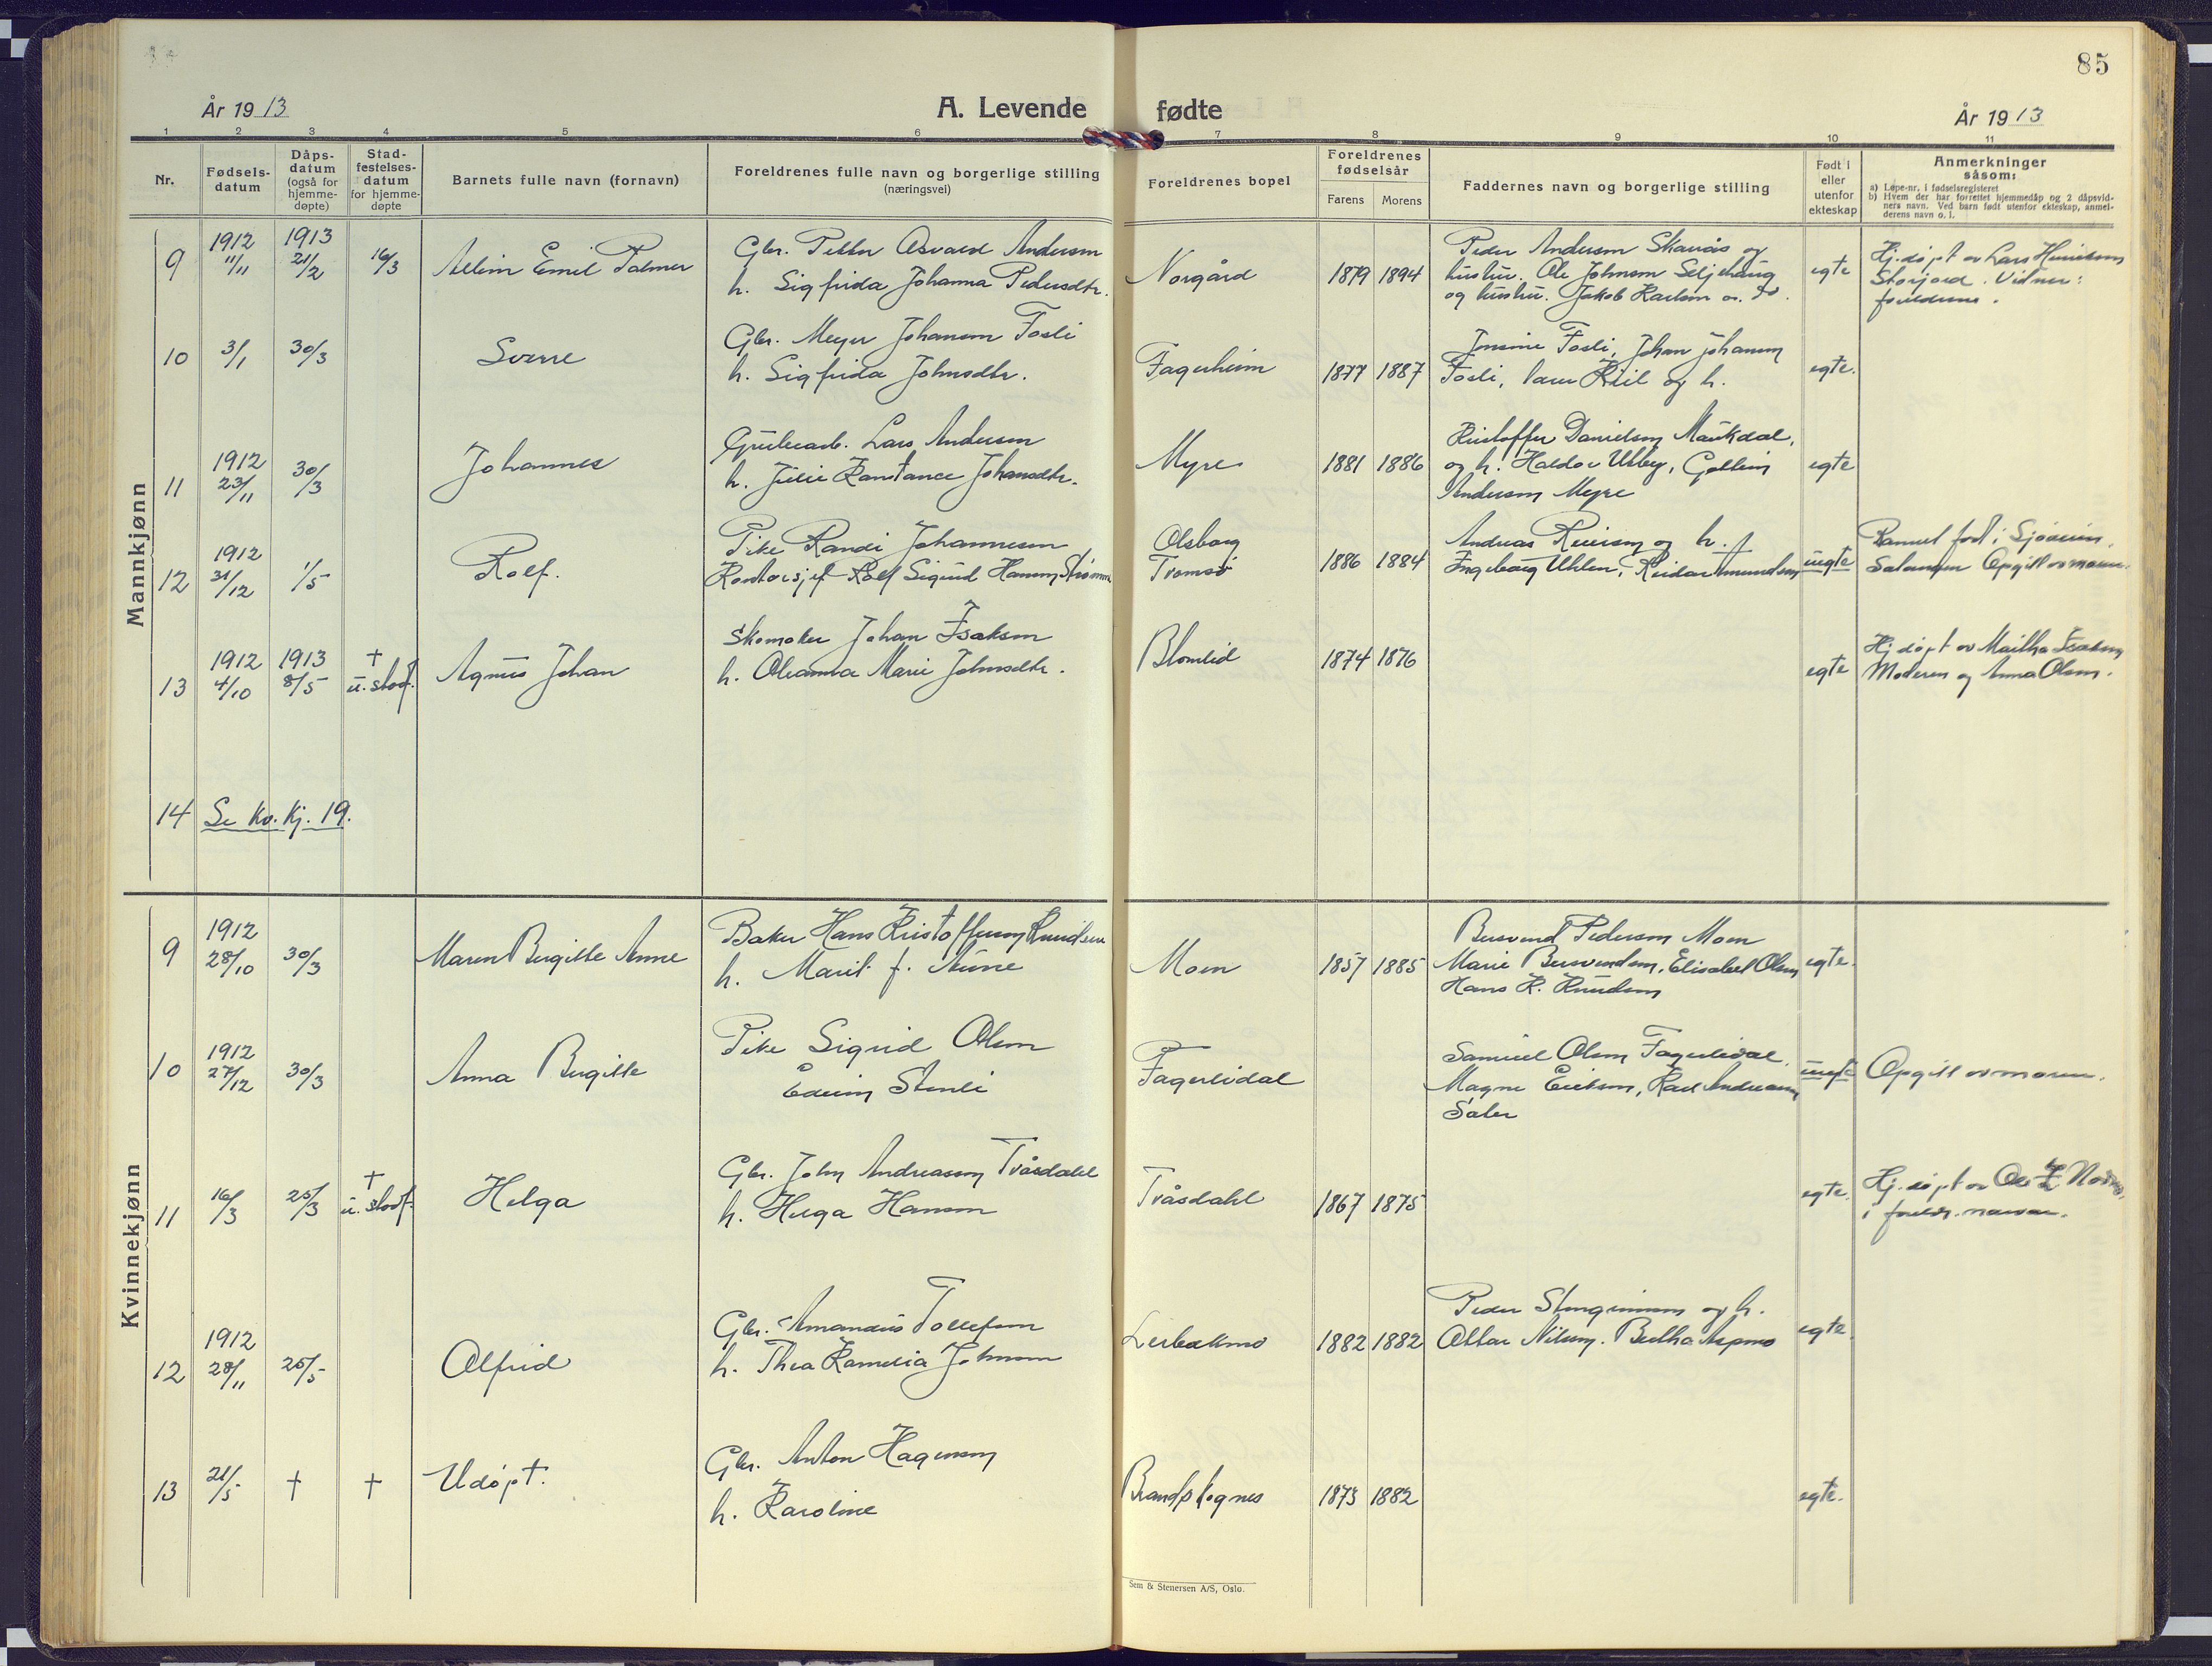 85
År 1913
A. Levende fødte
År 1913
1 2 3 4 5 6 7 8 9 10 11
Nr.
Fødsels-
datum
Dåps-
datum
(også for
hjemme-
døpte)
Stad-
festelses-
datum
for hjemme-
døpte
Barnets fulle navn (fornavn)
Foreldrenes fulle navn og borgerlige stilling
(næringsvei)
Foreldrenes bopel
Foreldrenes
fødselsår
Farens Morens
Faddernes navn og borgerlige stilling
Født i
eller
utenfor
ekteskap
Anmerkninger
såsom:
a) Løpe-nr. i fødselsregisteret
b) Hvem der har forrettet hjemmedåp og 2 dåpsvid-
ners navn. Ved barn født utenfor ekteskap, anmel-
derens navn o. l.
Mannkjønn
9 1912 11/11 1913 21/2 16/3 Emil Palmer
Gbr. Petter Osvald Andersen
h. Sigfrida Johanna Pedersdtr.
Norgård 1879 1894
Peder Andersen Skarås og
hustru. Ole Johnsen Seljehaug
og hustru. Jakob Karlsen o. do.
egte
Hj.døpt av Lars
Storjord. Vidner:
foreldrene.
10 3/1 30/3 Sverre
Gbr. Meyer Johansen Fosli
h. Sigfrida Johnsdtr.
Fagerheim 1877 1887
Jensine Fosli, Johan Johansen
Fosli, og h.
egte.
11 1912 23/11 30/3 Johannes
Grubearb. Lars Andersen
h. Julie Konstance Johansdtr.
Myre 1881 1886
Kristoffer Danielsen Maukdal,
og h. Haldor Utby,
Andersen Myre
egte
12 1912 31/12 1/5 Rolf.
Pike Randi Johannesen
Kontorsjef Rolf Sigurd Hansen
Olsborg
Tromsø
1886 1884
Andreas Reiersen og h.
Ingeborg Uhlen, Reidar Amundsen
uegte
Barnet født i
Salangen Opgitt av moren.
13 1912 4/10 1913 8/5 † u. stadf. Agnus Johan
Skomaker Johan Isaksen
h. Oleanna Marie Johnsdtr.
Blomlid 1874 1876
egte
Hj.døpt av Isaksen
Moderen og Anna Olsen.
14 Se Kv. Kj. 19.
Kvinnekjønn
9 1912 28/10 30/3 Maren Birgitte Anne
Baker Hans Kristoffersen Knudsen
h. Marit f. Aune
Moen 1857 1885
Bersvend Pedersen Moen
Marie Bersvendsen, Elisabet Olsen
Hans K. Knudsen
egte.
10 1912 27/12 30/3 Anna Birgitte
Pike Sigrid Olsen
Edvin Stenli
Fagerlidal
Samuel Olsen Fagerlidal.
Magne Eriksen, Karl Andreassen
Sæter
uegte
Opgitt av moren.
11 16/3 25/3 † u. stadf. Helga
Gbr. John Andreassen Tvåsdahl
h. Helga Hansen
Tvåsdahl 1867 1875
egte.
Hj.døpt av
i foreldr. nærvær.
12 1912 28/11 25/5 Alfrid
Gbr. Amandus Tollefsen
h. Thea Kamelia Johnsen
Lerbekmo 1882 1882
Peder og h.
Ottar Nilsen. Bertha Aspmo
egte.
13 21/5 † † Udøpt.
Gbr. Anton Hagensen
h. Karoline
Brandskognes 1873 1882
egte.
Sem & Stenersen A/S, Oslo.